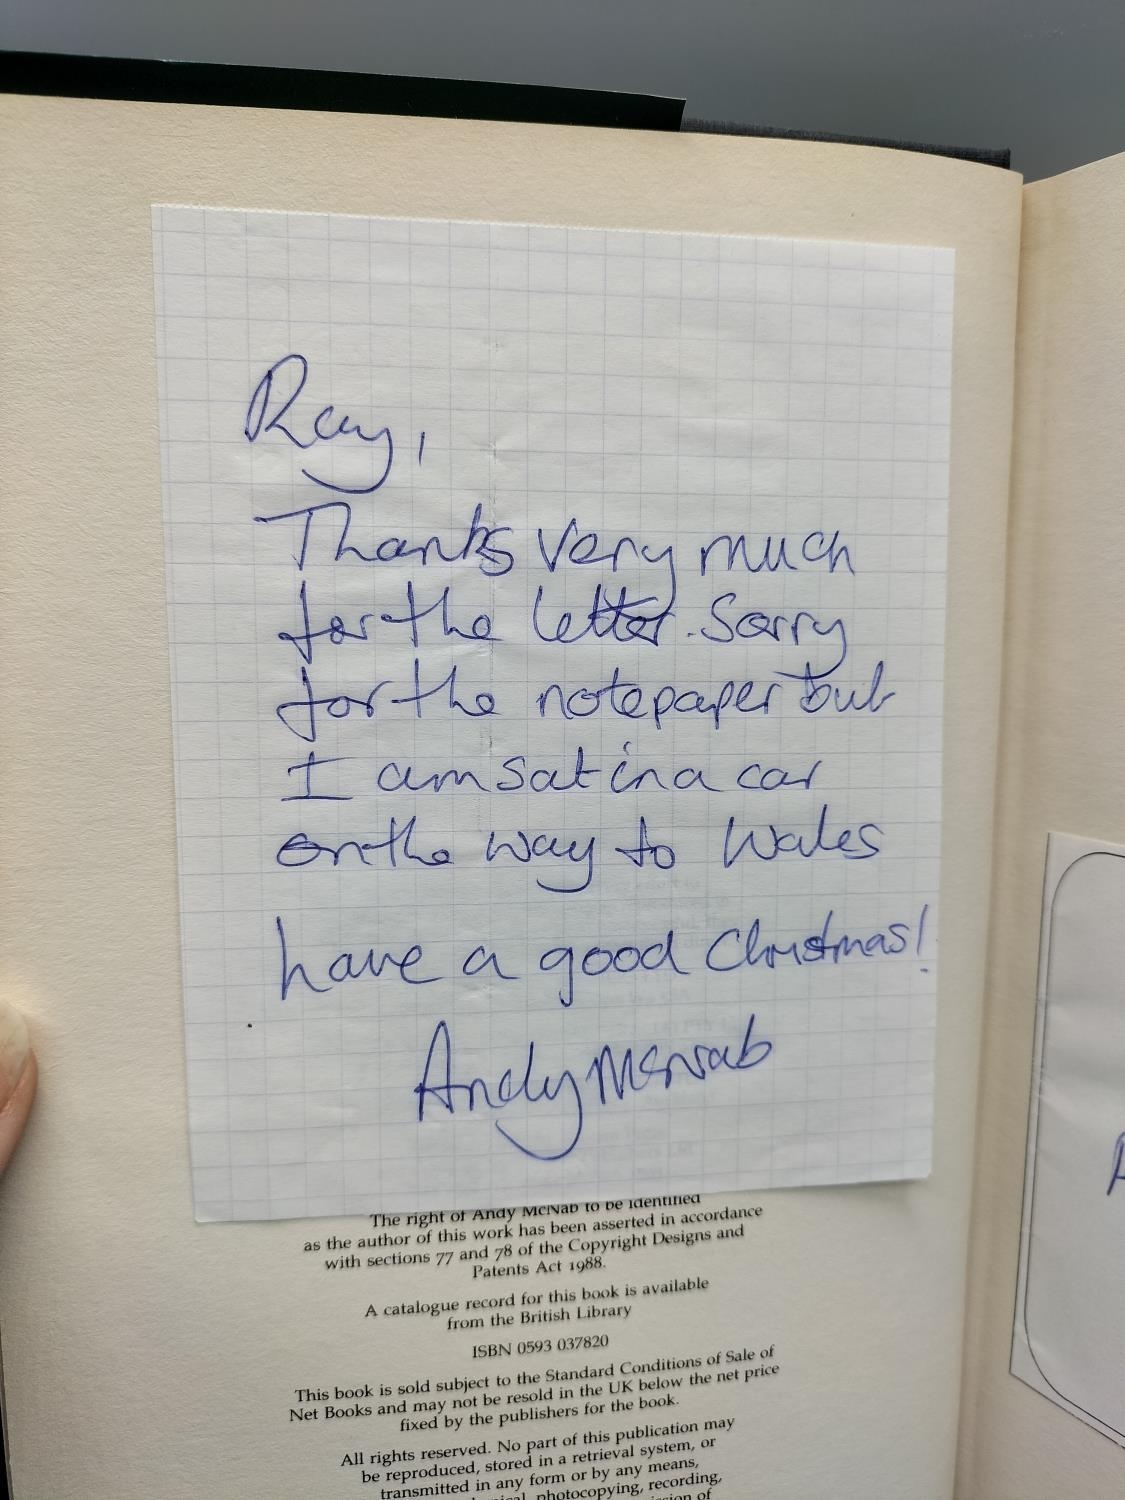 Ray,
Thanks very much
for the letter. Sorry
for the notepaper but
I am sat in a car
on the way to Wales
have a good Christmas!
Andy McNab
The right of Andy McNab to be identified
as the author of this work has been asserted in accordance
with sections 77 and 78 of the Copyright Designs and
Patents Act 1988.
A catalogue record for this book is available
from the British Library
ISBN 0593 037820
This book is sold subject to the Standard Conditions of Sale of
Net Books and may not be resold in the UK below the net price
fixed by the publishers for the book.
All rights reserved. No part of this publication may
be reproduced, stored in a retrieval system, or
transmitted in any form or by any means,
photocopying, recording,
of